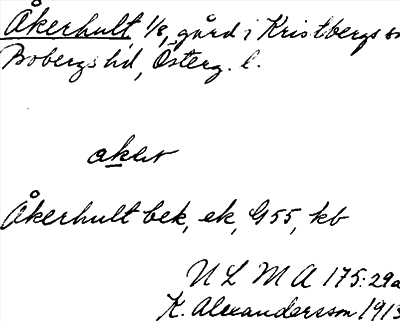 Åkerhult, 1/8, gård i Kristbergs sn
Bobergs hd, Österg. l.
akər
Åkerhult bek, ek, G55, kb
ULMA 175:29a
K. Alexandersson 1913